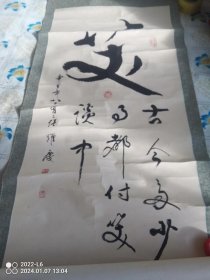 笑
古今多少
事都付笑
談中
2022-L6
2024.01.07 13:04